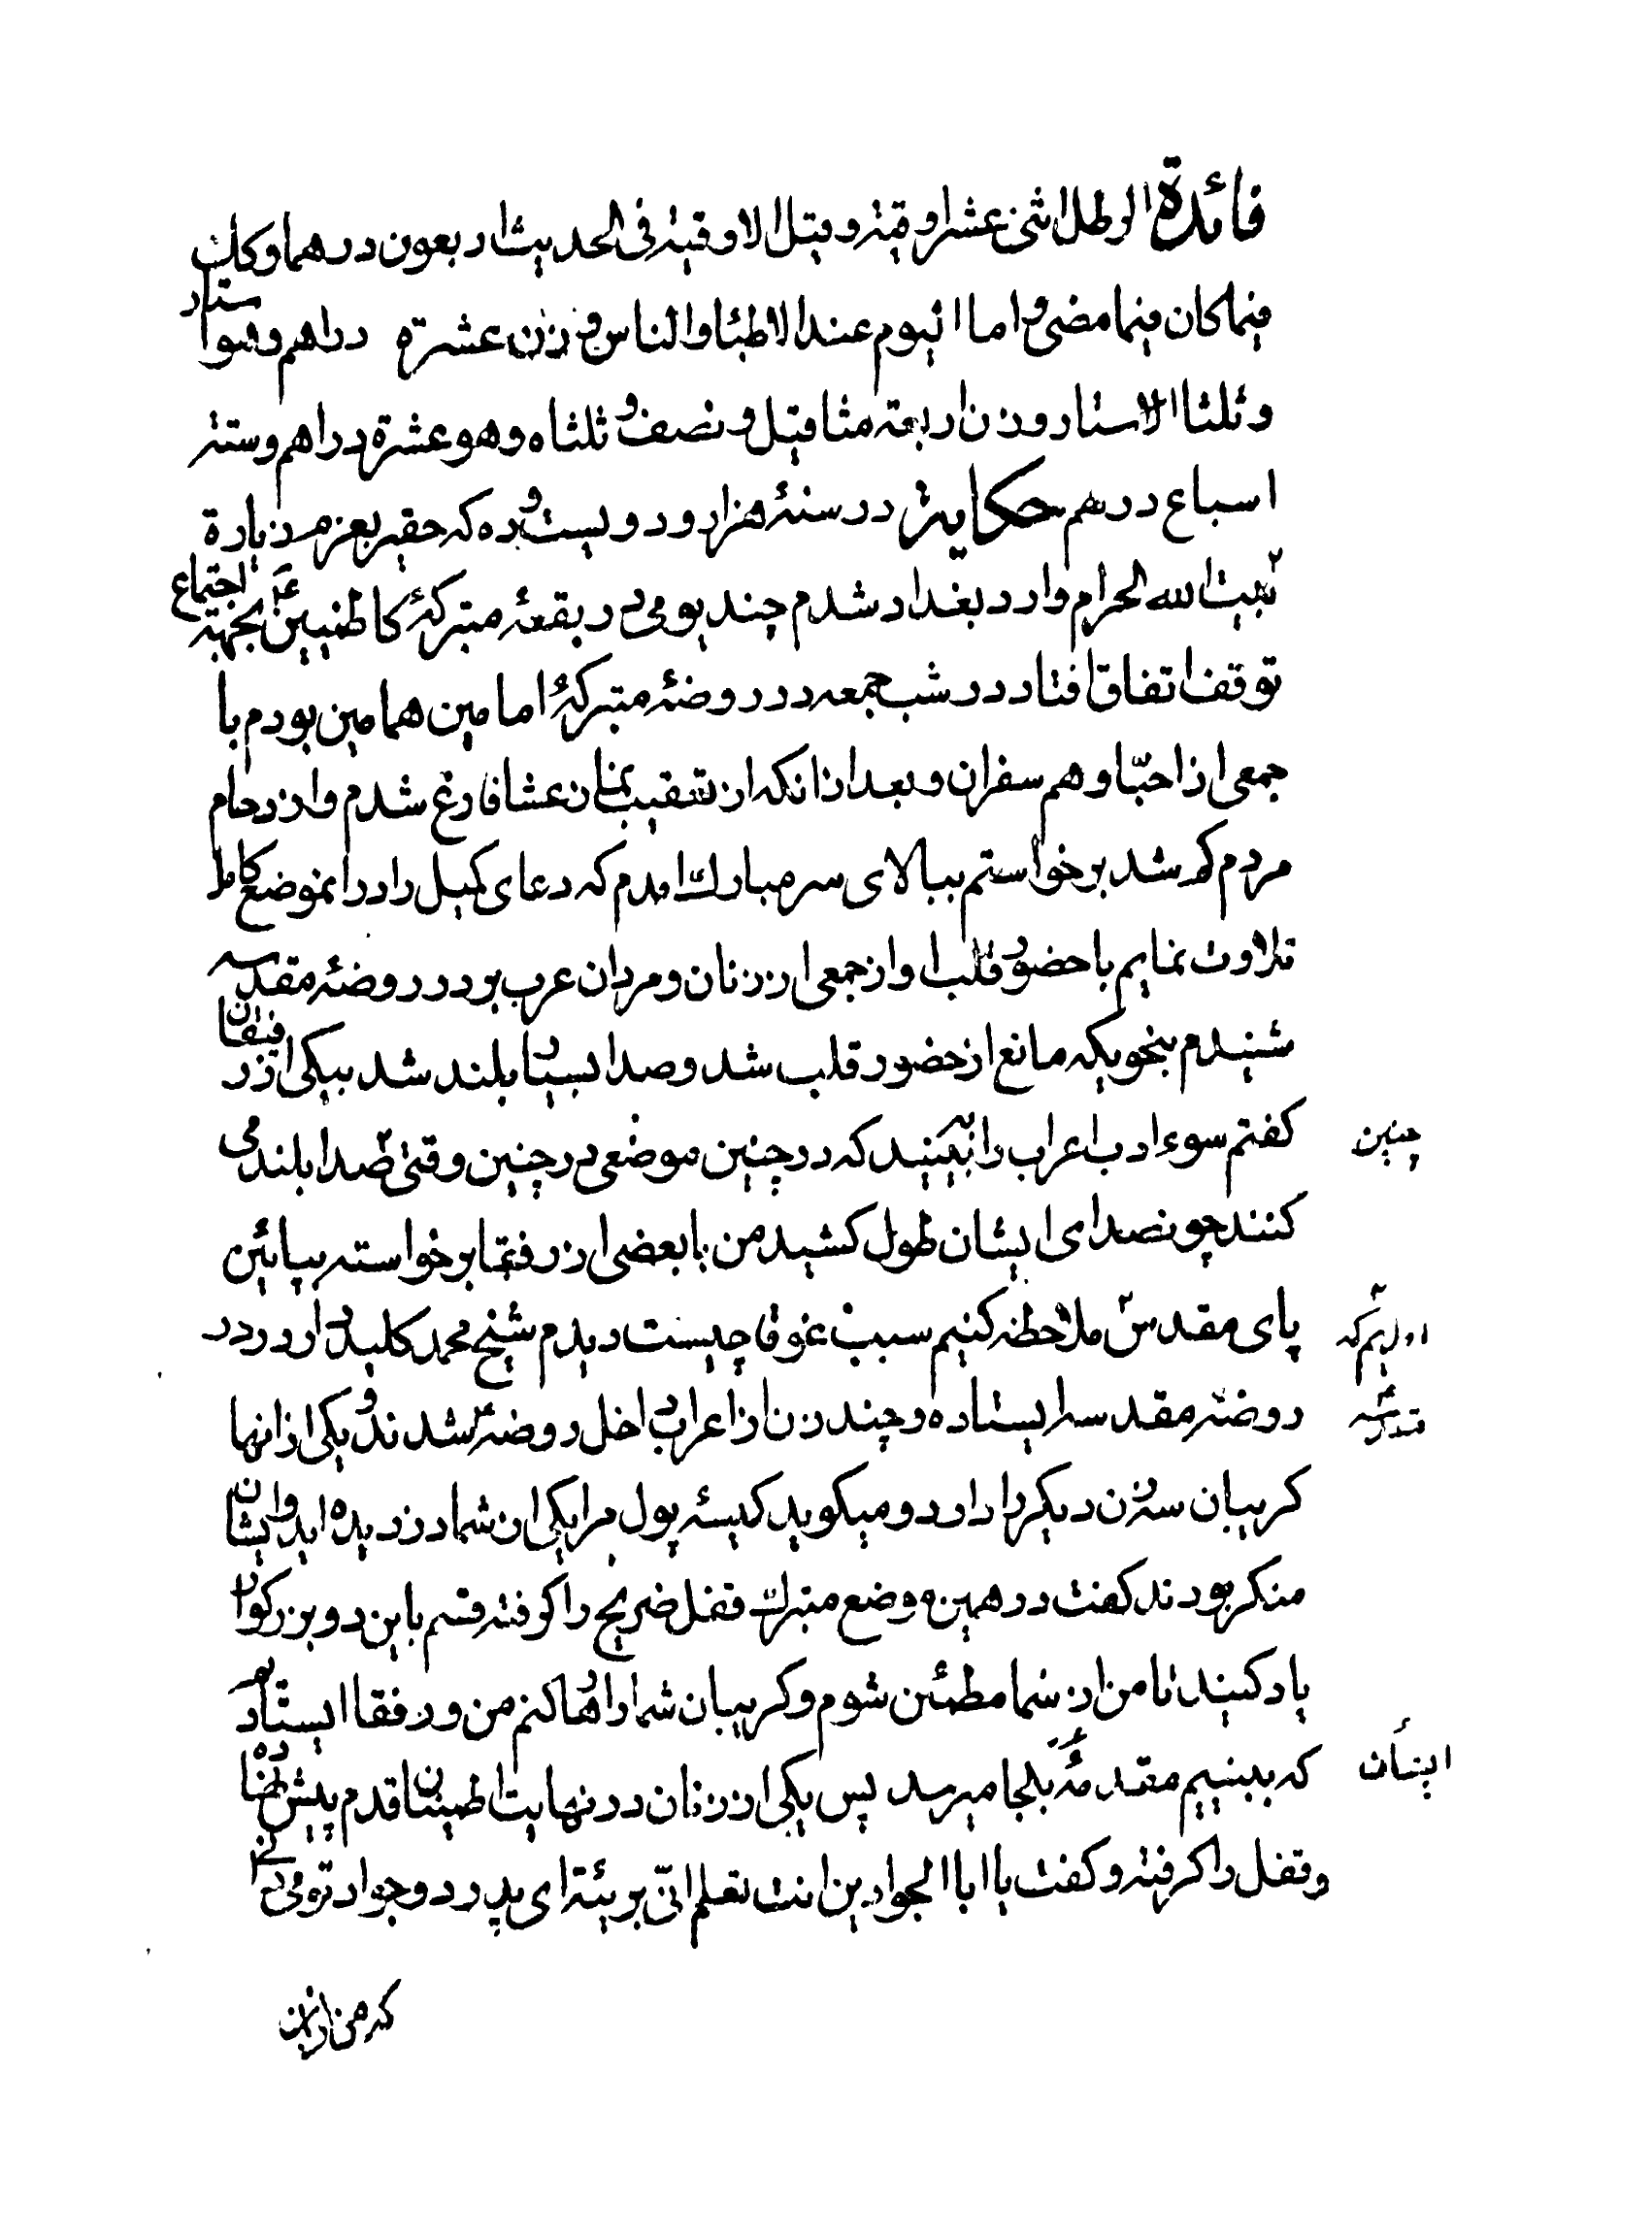 فائدة الرطل اثنی عشر اوقیه و قیل الاوقیة فی الحدیث اربعون درهما و کذلك
فیما کان فیما مضی و اما الیوم عند الاطباء و الناس وزن عشرة دراهم و هو استار
و ثلثا الاستار وزن اربعة مثاقیل و نصف و ثلثاه و هو عشرة دراهم و ستة
اسباع درهم حکایة در سنهٔ هزار و دویست و ده که حقیر بعزم زیارة
بیت الله الحرام وارد بغداد شدم چند یومی در بقعهٔ متبرکهٔ کاظمین بجهة اجتماع
توقف اتفاق افتاد در شب جمعه در روضهٔ متبرکهٔ امامین همامین بودم با
جمعی از احبّا و هم سفران و بعد از انکه از تعقیب نماز عشا فارغ شدم و ازدحام
مردم کم شد برخواستم ببالای سر مبارك امدم که دعای کمیل را در انموضع کامل
تلاوت نمایم با حضور قلب اواز جمعی از زنان و مردان عرب بر در روضهٔ مقدسه
شنیدم بنحویکه مانع از حضور قلب شد و صدا بسیار بلند شد بیکی از رفیقان
کفتم سوء ادب اعراب را ببینید که در چنین موضعی در چنین وقتی صدا بلند می
چنین
کنند چون صدای ایشان طول کشید من با بعضی از رفقا برخواسته بپائین
پای مقدس ملاحظه کنیم سبب غوغا چیست دیدم شیخ محمد کلیددار در در
روضه مقدسه ایستاده و چند زن از اعراب داخل روضه شدند و یکی از انها
کریبان سه زن دیکر را دارد و میکوید کیسهٔ پول مرا یکی از شما دزدیده اید و ایشان
منکر بودند کفت در همین موضع متبرك قفل ضریح را کرفته قسم باین دو بزرکوار
یاد کنید تا من از شما مطمئن شوم و کریبان شما را رها کنم من و رفقا ایستادیم
که ببینیم مقدمهٔ بکجا میرسد پس یکی از زنان در نهایت اطمینان قدم پیش نهاده
ایشان
و قفل را کرفته و کفت یا ابا الجوادین انت تعلم انّی بریئة ای پدر دو جواد تو میدانی
که من از این